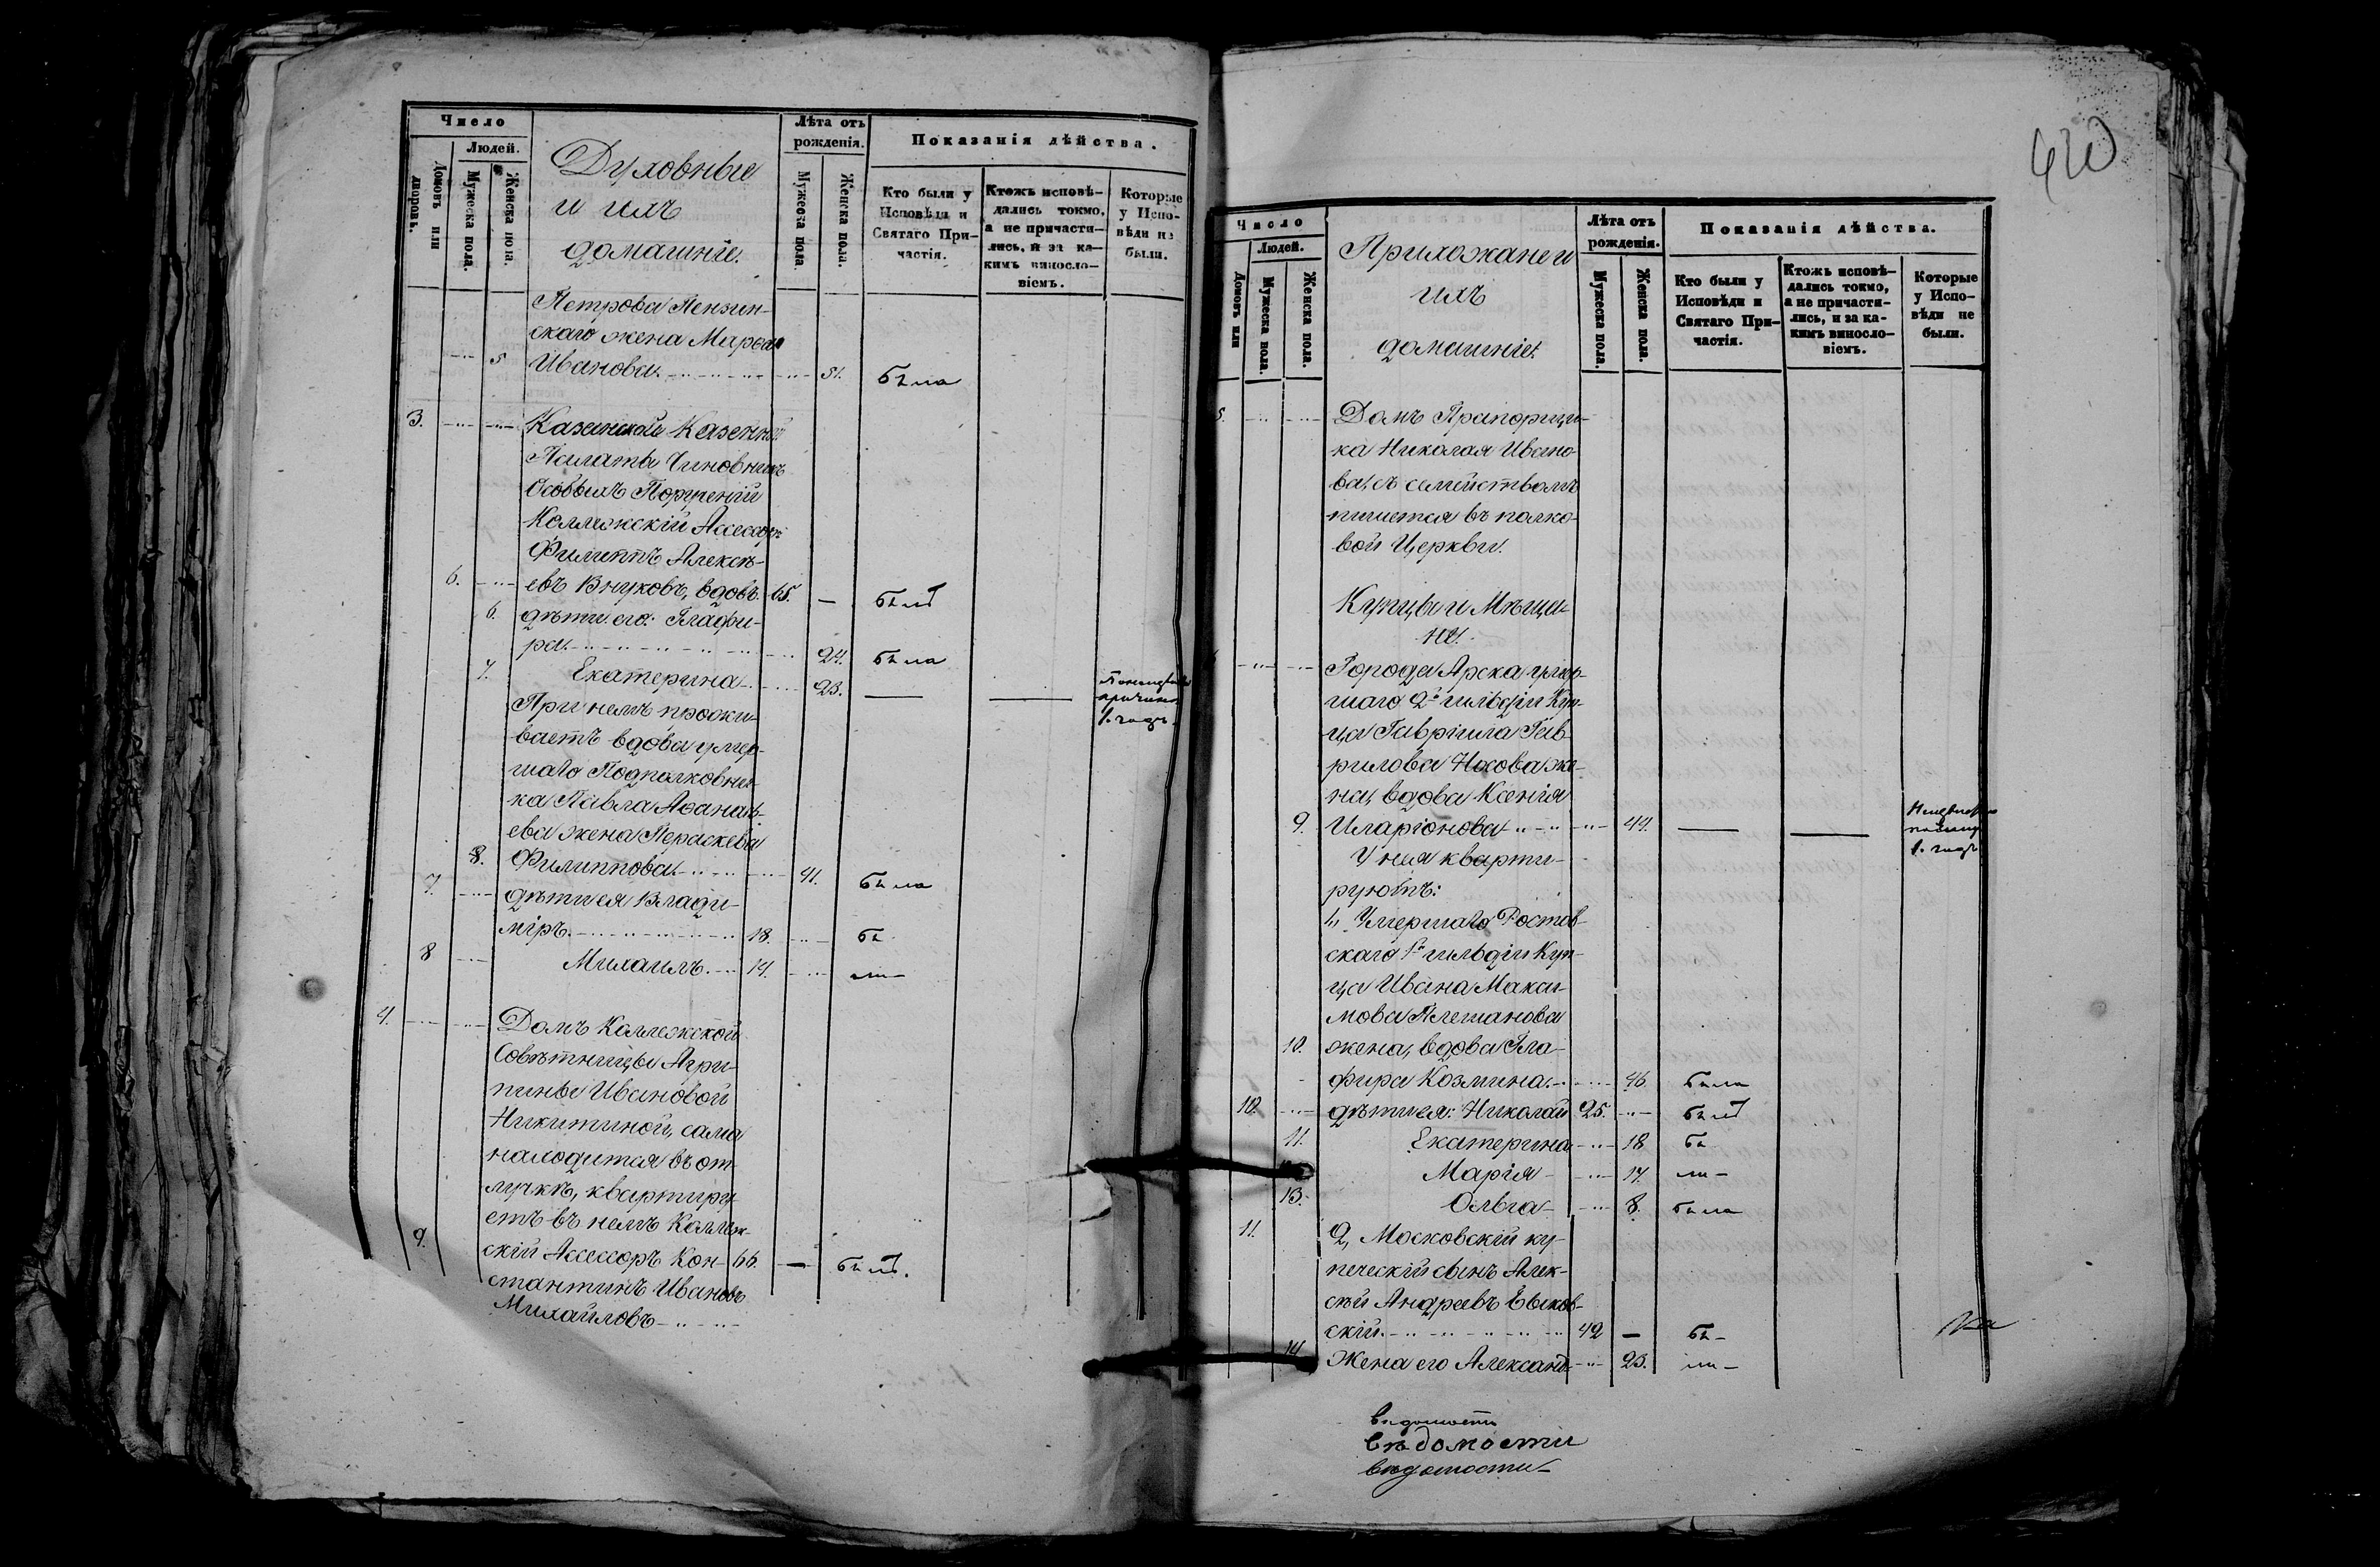 Число
Людей.
Домовъ или дворовъ.
Мужеска пола.
Женска пола.
Духовные
и ихъ
домашніе.
Лѣта отъ рожденія.
Мужеска пола.
Женска пола.
Показанія дѣйства.
Кто были у Исповѣди и Святаго Причастія.
Ктожъ исповѣ-дались токмо, а не причасти-лись, и за ка-кимъ винословіемъ.
Которые у Испо-вѣди не были.
Петрова Пензин-
скаго жена Марья
5 Иванова. 51. была
3. Казанской Казенной
Палаты Чиновникъ
Особыхъ Порученій
Коллежскій Ассессоръ
Филиппъ Алексѣ-
6. евъ Внуковъ, вдовъ. 65. — былъ
6. дѣти его: Глафи-
ра. 24. была
7. Екатерина 23. — — 1. годъ.
При немъ прожи-
ваетъ вдова умер-
шаго Подполковни-
ка Павла Аѳанась-
ева жена Параскева
8. Филиппова. 41. была
7. дѣти ея Влади-
міръ. 18. бы
8 Михаилъ. 14. ли—
4. Домъ Коллежской
Совѣтницы Агри-
пины Ивановой
Никитиной, сама
находится въ от-
лучкѣ, квартиру-
етъ въ немъ Коллеж-
9. скій Ассессоръ Кон- 66. — былъ.
стантинъ Ивановъ
Михайловъ
420
Число
Людей.
Домовъ или
Мужеска пола.
Женска пола.
Прихожане и
ихъ
домашніе.
Лѣта отъ рожденія.
Мужеска пола.
Женска пола.
Показанія дѣйства.
Кто были у Исповѣди и Святаго При-частія.
Ктожъ исповѣ-дались токмо, а не причасти-лись, и за ка-кимъ винословіемъ.
Которые у Испо-вѣди не были.
5. Домъ Прапорщи-
ка Николая Ивано-
ва, съ семействомъ
пишется въ полко-
вой Церкви.
Купцы и Мѣща-
не.
Города Арска умер-
шаго 2й гильдіи Куп-
ца Гавріила Гав-
рилова Носова же-
на, вдова Ксенія
9. Иларіонова 44. — — 1. годъ
У нея кварти-
руютъ:
1, Умершаго Ростов-
скаго 1й гильдіи Куп-
ца Ивана Макси-
мова Плешанова
10. жена, вдова Гла-
фира Козмина. 46. была
10. дѣти ея: Николай 25. былъ
11. Екатерина 18 бы
Марія 14. ли—
13. Ольга 8. была
11. 2, Московскій ку-
печескій сынъ Алек-
сѣй Андреевъ Быков-
скій. 42 — бы—
14. Жена его Александ- 23. ли—
вѣдомости
вѣдомости
вѣдомости